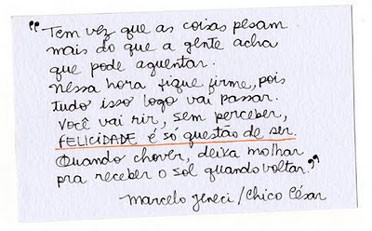 "Tem vez que as coisas pesam
mais do que a gente acha
que pode aguentar.
Nessa hora fique firme, pois
tudo isso logo vai passar.
Você vai rir, sem perceber,
FELICIDADE é só questão de ser.
Quando chover, deixa molhar
pra receber o sol quando voltar."
Marcelo Jeneci/Chico César